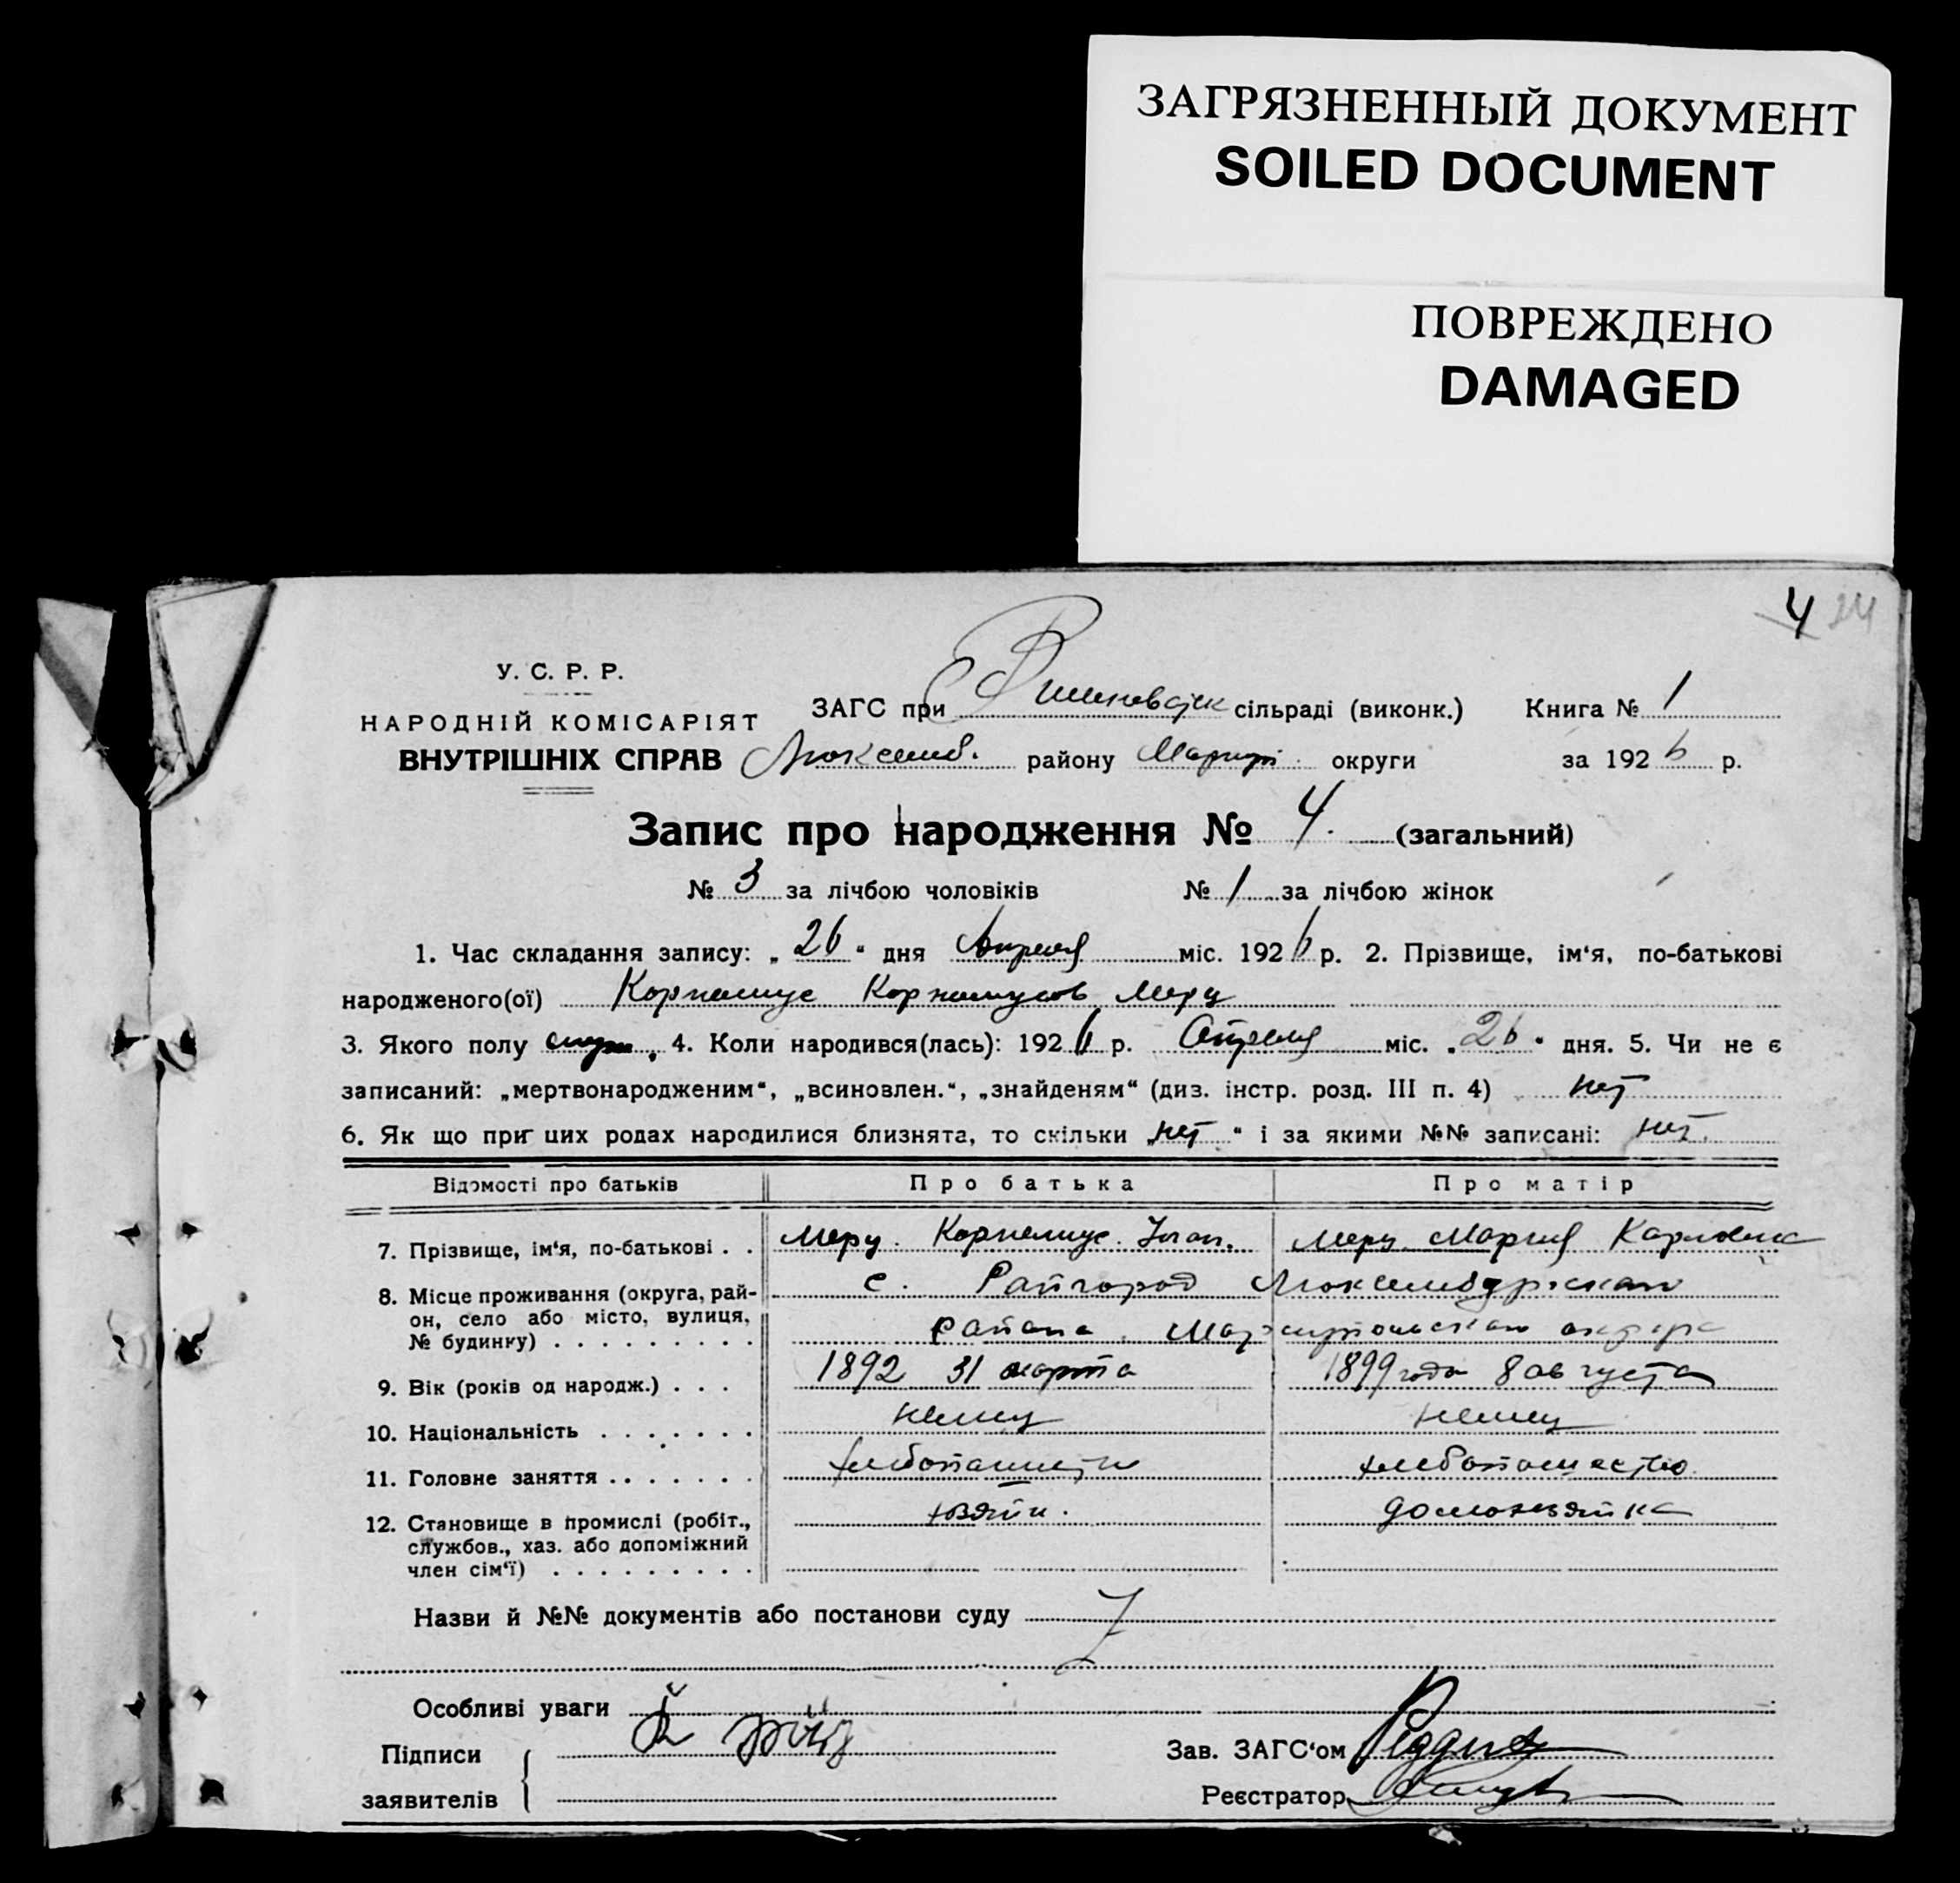 ЗАГРЯЗНЕННЫЙ ДОКУМЕНТ
SOILED DOCUMENT
ПОВРЕЖДЕНО
DAMAGED
4 24
У. С. Р. Р.
НАРОДНІЙ КОМІСАРІЯТ
ВНУТРІШНІХ СПРАВ
ЗАГС при сільраді (виконк.) Книга № 1
Люксемб. району Маріуп. округи за 1926 р.
Запис про народження № 4. (загальний)
№ 3 за лічбою чоловіків № 1 за лічбою жінок
1. Час складання запису: „26“ дня Апреля міс. 1926 р. 2. Прізвище, ім‘я, по-батькові
народженого(ої) Корнелиус Корнелиусов Мерц
3. Якого полу муж. 4. Коли народився(лась): 1926 р. Апреля міс. „26“ дня. 5. Чи не є
записаний: „мертвонародженим“, „всиновлен.“, „знайденям“ (диз. інстр. розд. III п. 4) нет
6. Як що при цих родах народилися близнята, то скільки „нет“ і за якими №№ записані: нет.
Відомості про батьків Про батька Про матір
7. Прізвище, ім‘я, по-батькові . . Мерц. Корнелиус Мерц Мария Карловна
8. Місце проживання (округа, рай- с. Райгород Люксембургского
он, село або місто, вулиця,
№ будинку) . . . . . . . . . района Мариупольского округа
9. Вік (років од народж.) . . . 1892 31 марта 1899 года 8 августа
10. Національність . . . . . . . немец немец
11. Головне заняття . . . . . . . хлебопашество
12. Становище в промислі (робіт., хозяин. домохозяйка
службов., хаз. або допоміжний
член сім‘ї) . . . . . . . . .
Назви й №№ документів або постанови суду
Особливі уваги
Підписи
Зав. ЗАГС‘ом
заявителів
Реєстратор